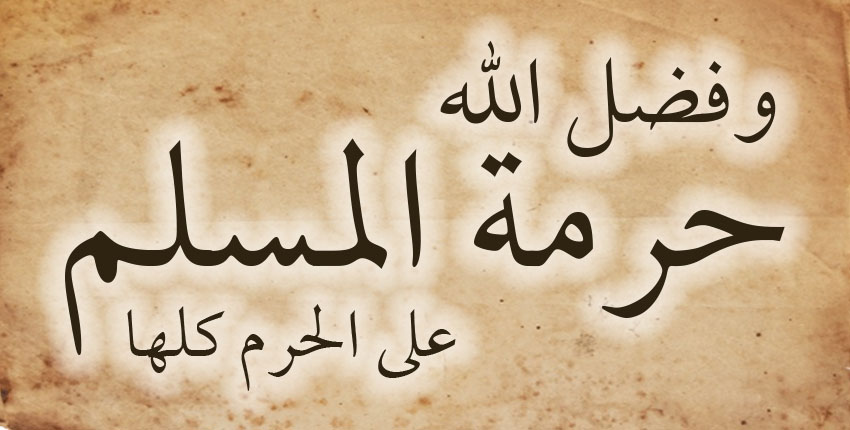 و فضل الله
حرمة المسلم
على الحرم كلها